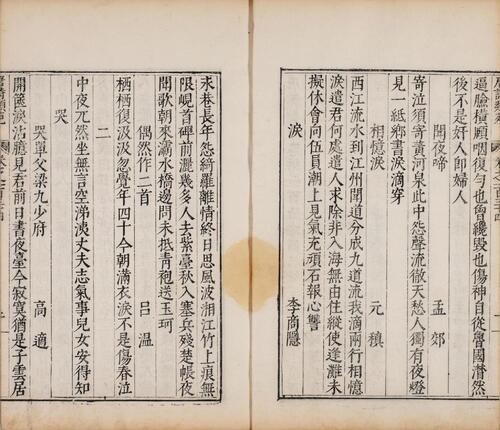 逼臉橫頤咽復勻也曾讒毀也傷神自從魯國潸然
後不是奸人卽婦人
聞夜啼 孟郊
寄泣須寄黃河泉此中怨聲流徹天愁人獨有夜燈
見一紙鄉書淚滴穿
相憶淚 元稹
西江流水到江州聞道分成九道流我滴兩行相憶
淚遣君何處遣人求除非入海無由住縱使逢灘未
擬休會向伍員潮上見氣充頑石報心讐
淚 李商隱
永巷長年怨綺羅離情終日思風波湘江竹上痕無
限峴首碑前灑幾多人去紫臺秋入塞兵殘楚帳夜
聞歌朝來灞水橋邊問未抵青袍送玉珂
偶然作二首 呂溫
栖栖復汲汲忽覺年四十今朝滿衣淚不是傷春泣
二
中夜兀然坐無言空涕洟丈夫志氣事兒女安得知
哭
哭單父梁九少府 高適
開篋淚沾臆見君前日書夜臺今寂寞猶是子雲居